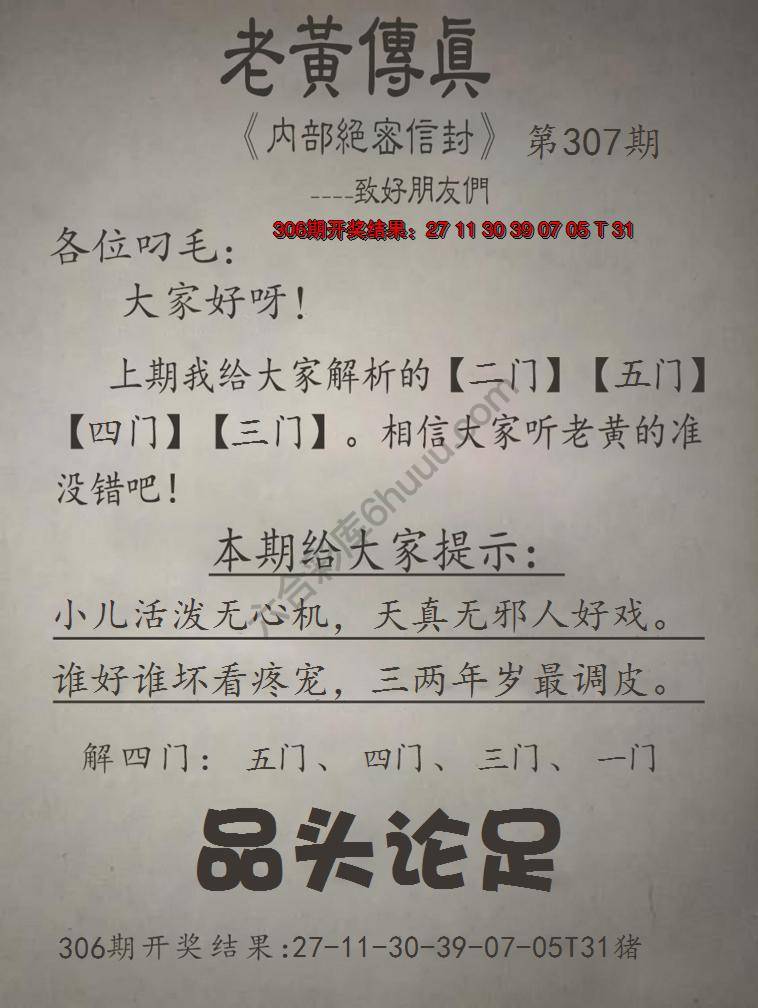 老黃傳眞
《内部絕密信封》 第307期
----致好朋友們
306期开奖结果：27 11 30 39 07 05 T 31
各位叼毛：
大家好呀！
上期我给大家解析的【二门】【五门】
【四门】【三门】。相信大家听老黄的准
没错吧！
本期给大家提示：
小儿活泼无心机，天真无邪人好戏。
谁好谁坏看疼宠，三两年岁最调皮。
解四门： 五门、 四门、 三门、 一门
品头论足
306期开奖结果:27-11-30-39-07-05T31猪
六合彩库6huuu.com